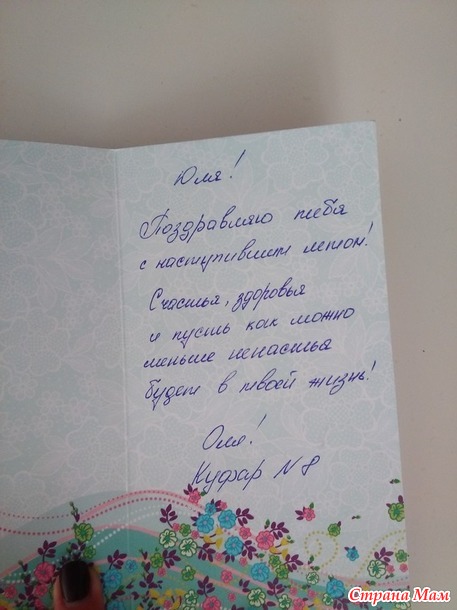 Юля!
Поздравляю тебя
с наступившим летом!
Счастья, здоровья
и пусть как можно
меньше ненастья
будет в твоей жизнь!
Оля!
Куфар N8
Страна Мам